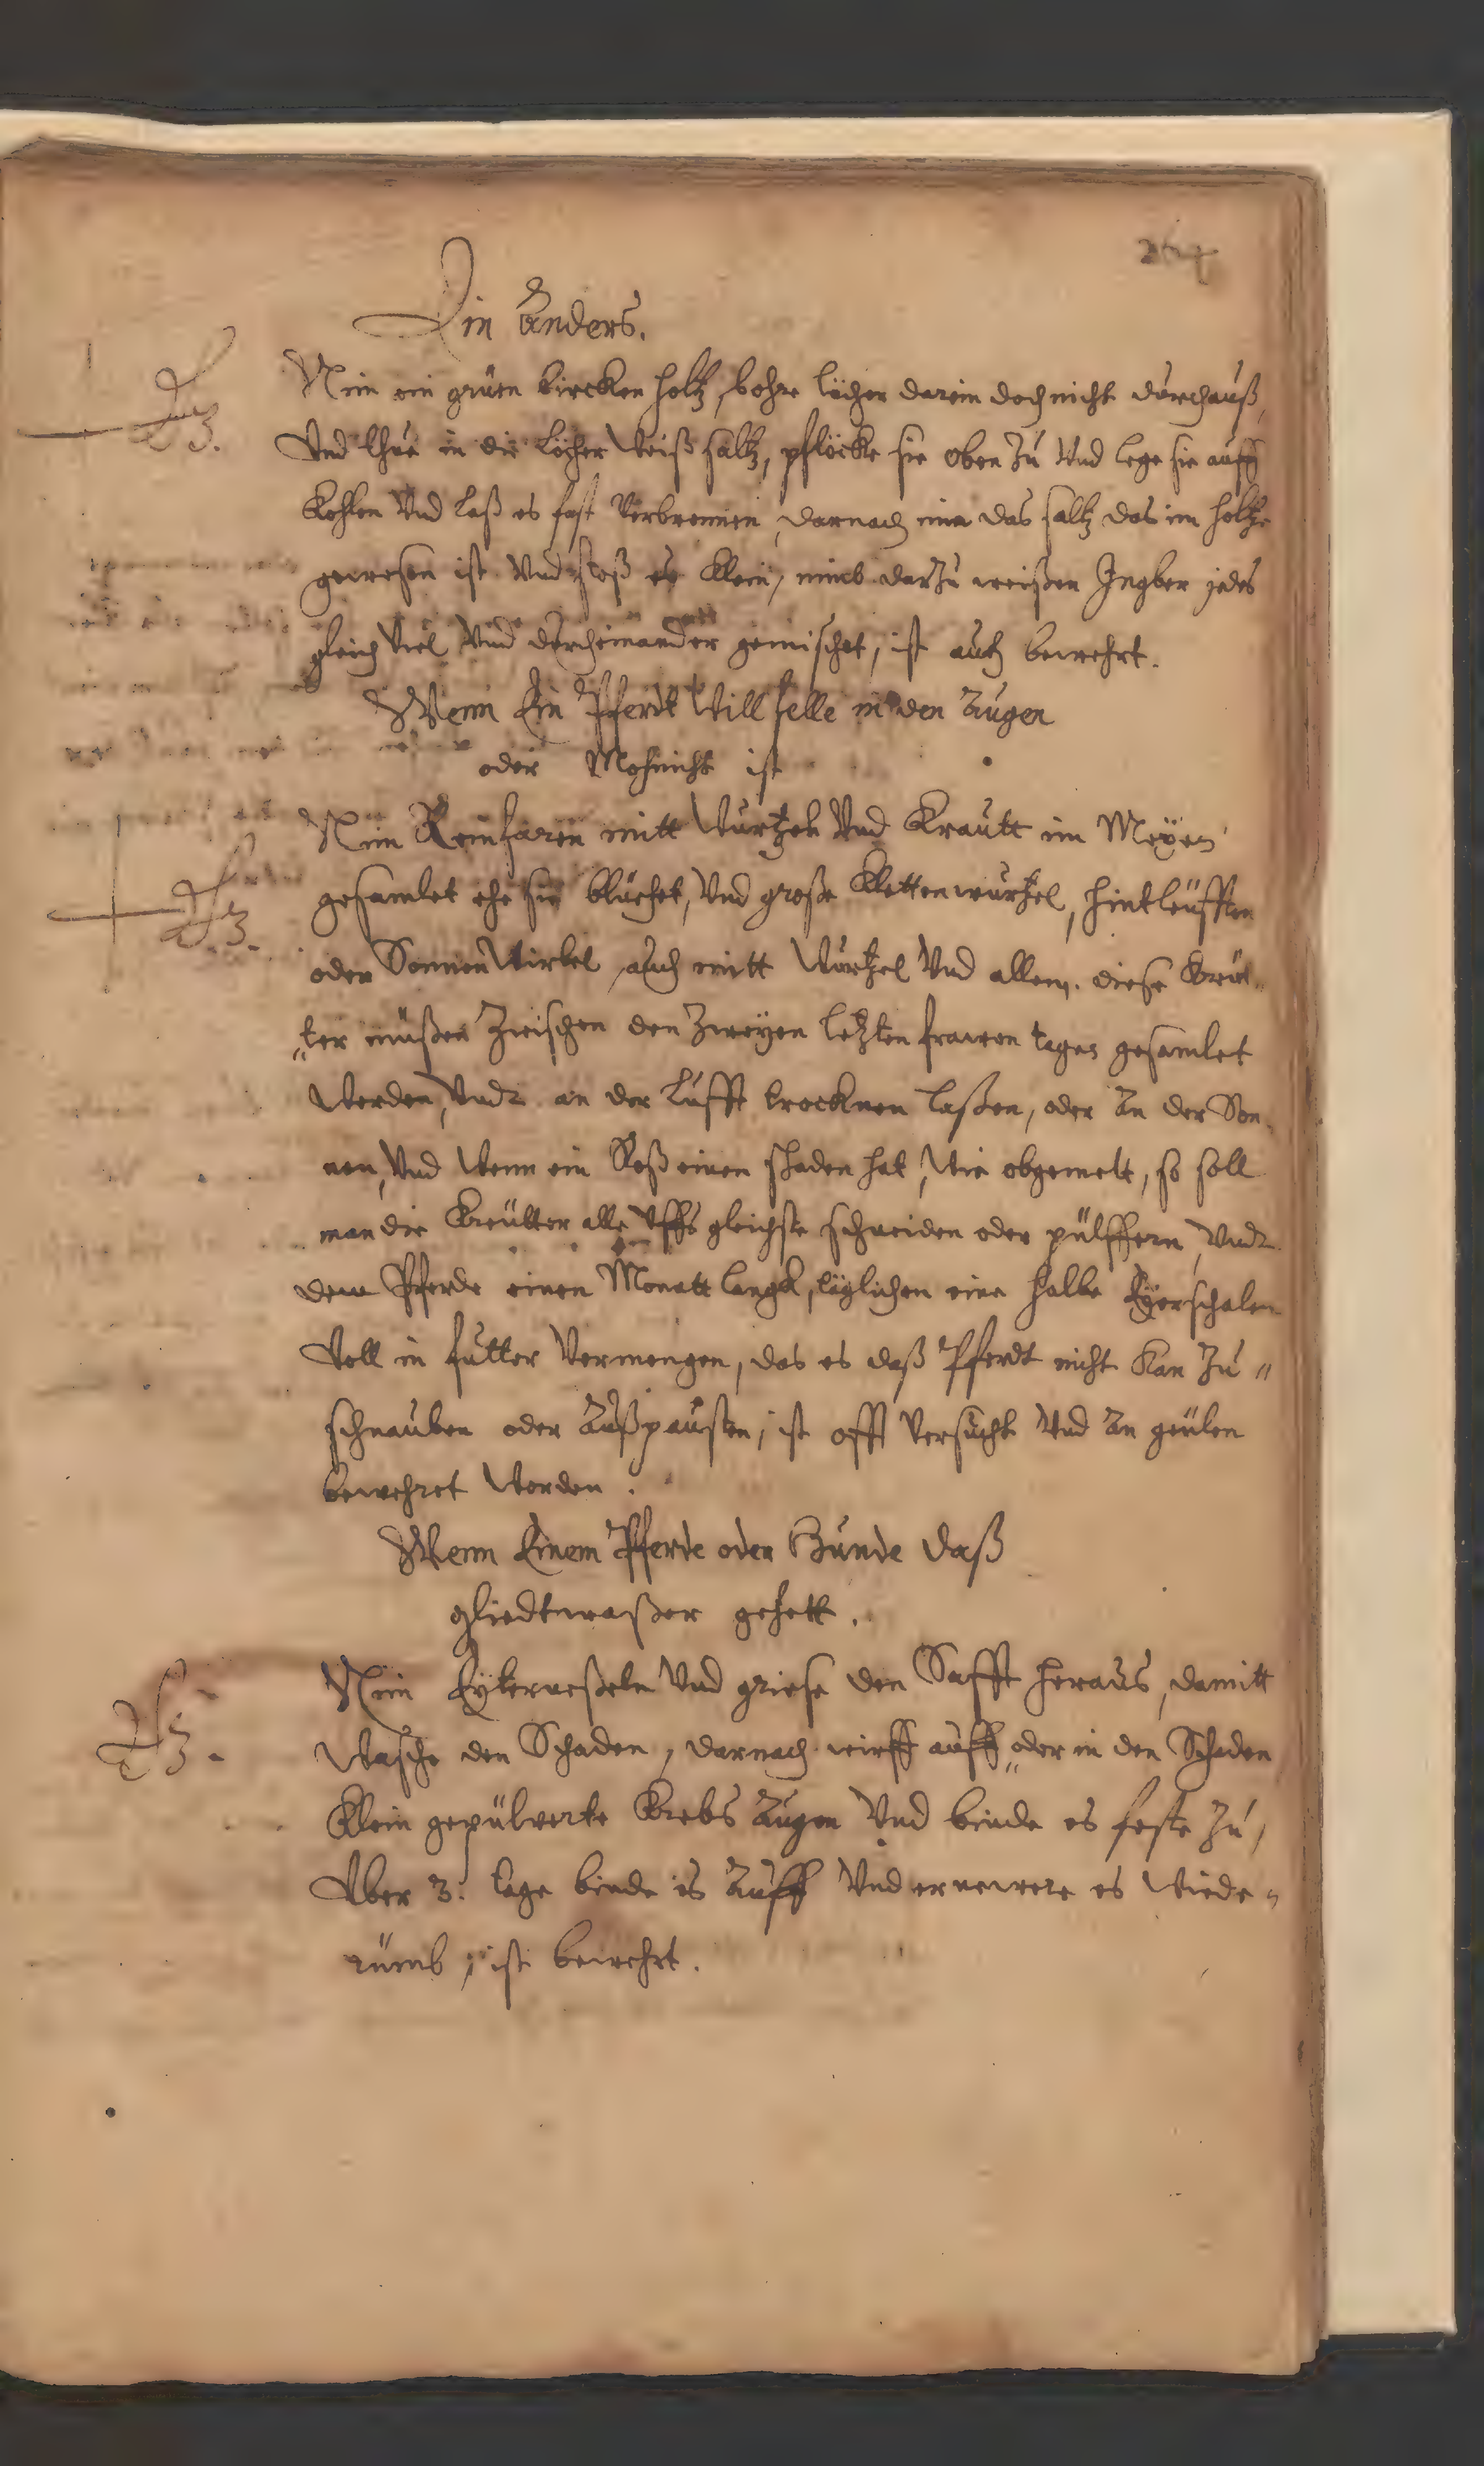 Ein Anders.
Nim ein grüen bircken holtz, bohre löcher darein doch nicht durchauß,
Vnd thue in die löcher Weiß saltz, pflöcke sie oben Zu Vnd lege sie auff
Kohlen Vnd laß es fast Verbrennen, darnach nim das saltz das im holtze
gewesen ist Vnd stoß es klein, nimb darzu weißen Ingber jedes
gleich Viel Vnd durcheinander gemischet, ist auch bewehrt.
Wenn Ein Pferdt Will felle in den Augen
oder Mohnicht ist
Nim Reinfaren mitt Wurtzel Vnd Krautt im Meyen
gesamlet ehe sie blüehet, Vnd große Klettenwurtzel, hintleüfften
oder SonnenWirbel, auch mitt Wurtzel Vnd allem. diese Kreüt„
„ter müßen Zwischen den Zweyen letzten frawen tagen gesamlet
Werden, Vndt an der lufft trocknen laßen, oder An der Son„
nen, Vnd Wenn ein Roß einen schaden hat, Wie obgemelt, so soll
man die Kreütter alle Vffs gleichste schneiden oder pülffern, Vndt
dem Pferde einen Monatt langk, täglichen eine halbe Eyerschalen
Voll in futter Vermengen, das es daß Pferdt nicht kan Zu„
schnauben oder Außpausten, ist offt Versucht Vnd An geülen
bewehret Worden.
Wenn Einem Pferde oder Hunde daß
gliedtwaßer gehett.
Nim Eyterneßeln Vnd griese den Safft heraus, damitt
Wasche den Schaden, darnach wirff auff oder in den Schaden
klein gepülverte Krebs Augen Vnd binde es feste Zu,
Vber 3. tage binde es Auff Vnd ernewere es Wiede„
rumb, ist bewehrt.